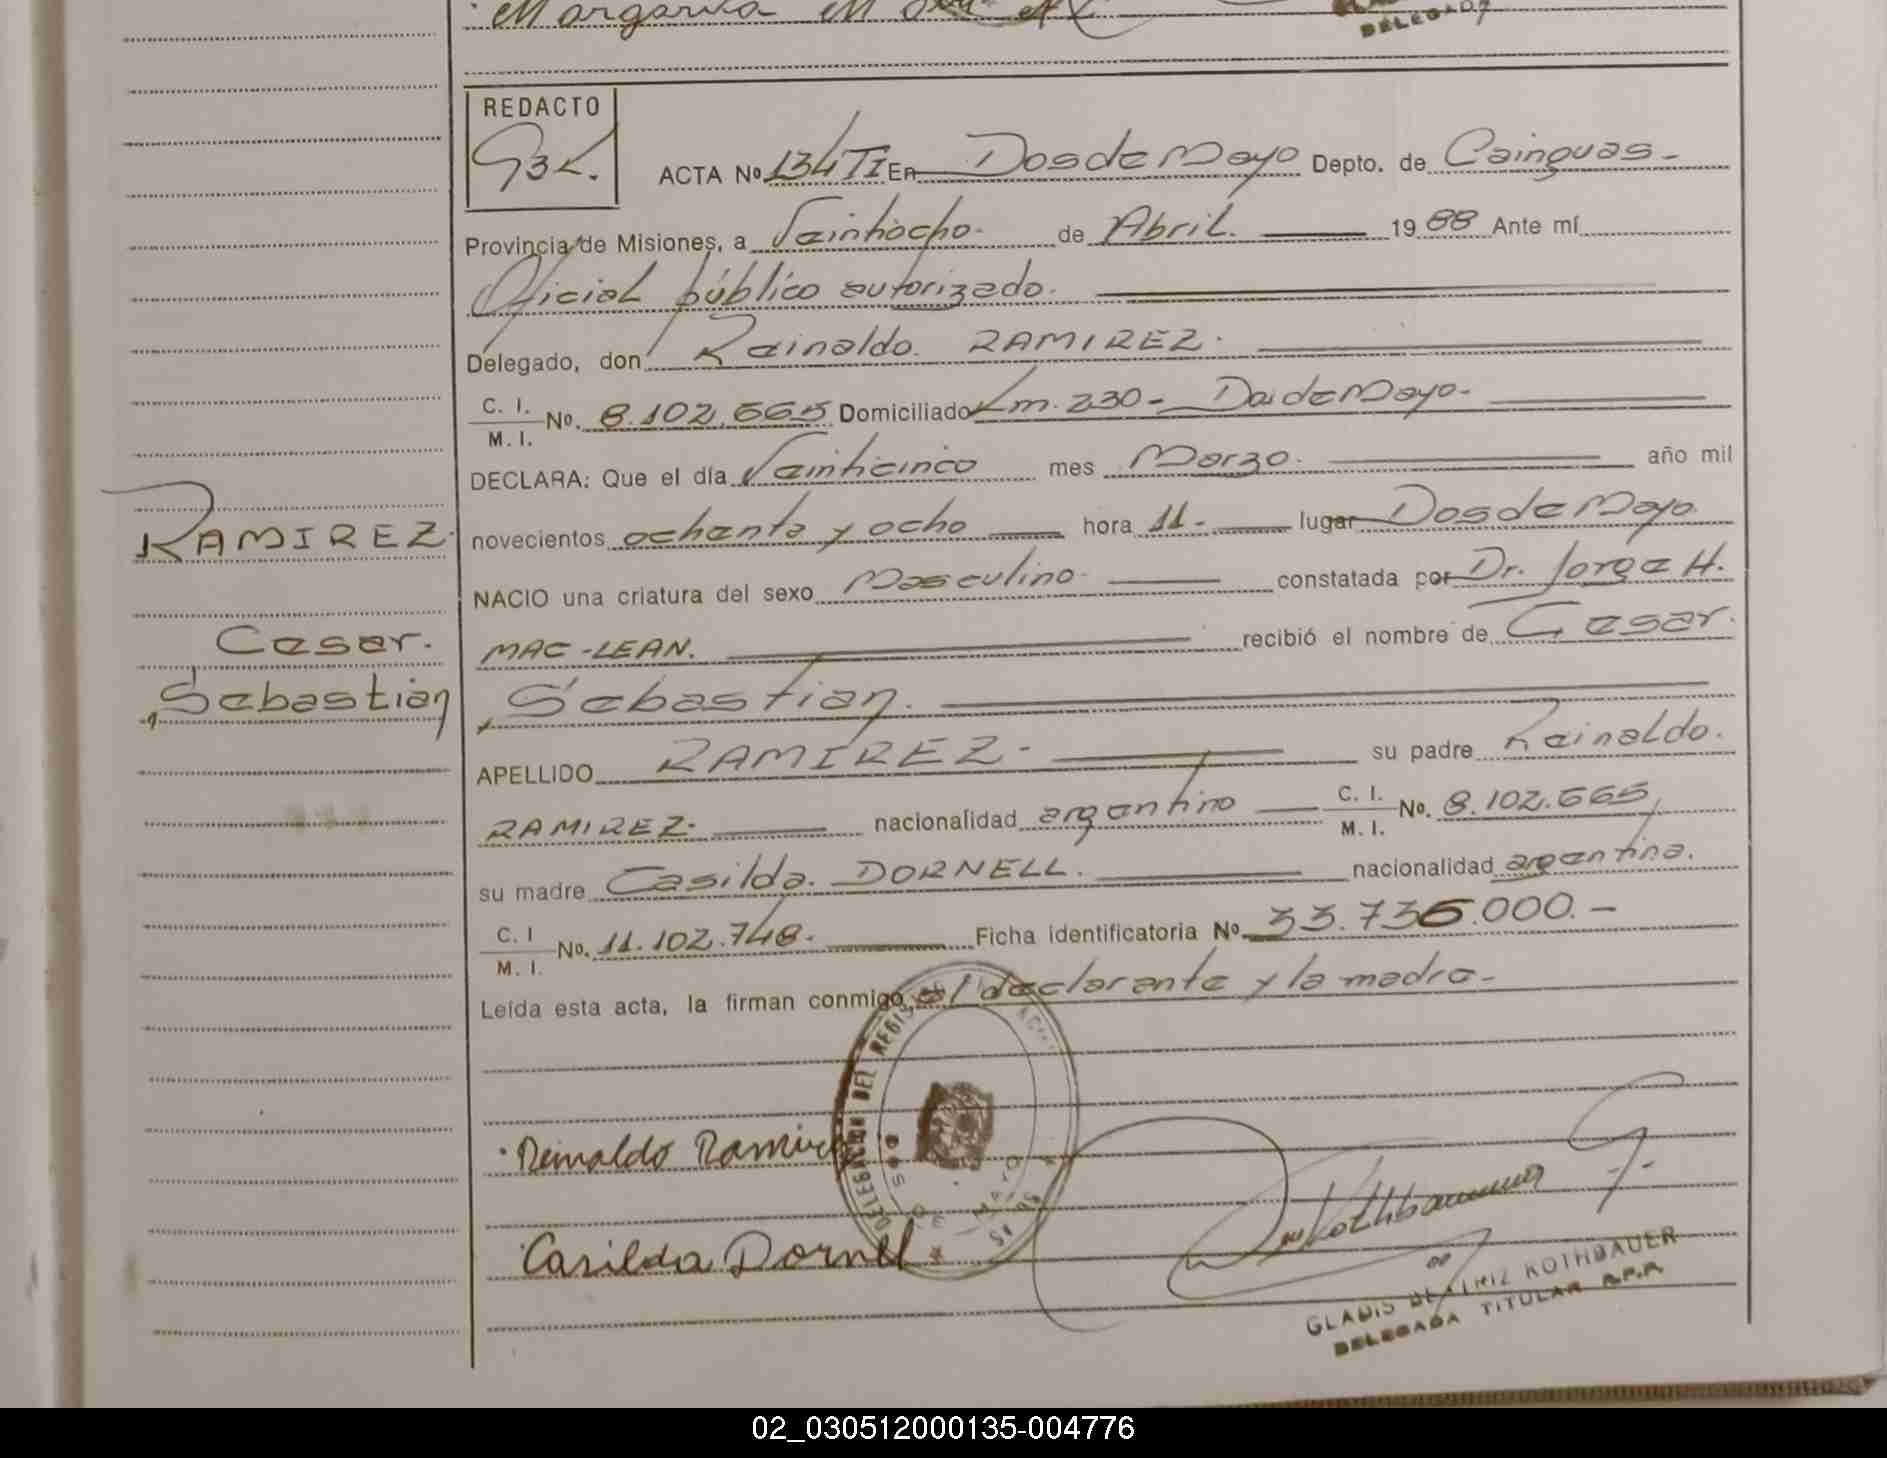 Margarita
DELEGADA
REDACTO
ACTA Nº 134 TI En Dos de Mayo Depto. de Cainguas.-
Provincia de Misiones, a Veintiocho. de Abril. 1988 Ante mí
Oficial público autorizado.
Delegado, don Reinaldo. RAMIREZ.
C. I.
M. I.
No. 8.102.665 Domiciliado Km. 230- Dos de Mayo-
DECLARA: Que el día Veinticinco mes Marzo. año mil
novecientos ochenta y ocho hora 11.- lugar Dos de Mayo
NACIO una criatura del sexo Masculino. constatada por Dr. Jorge H.
MAC-LEAN. recibió el nombre de Cesar.
Sebastian.
APELLIDO RAMIREZ- su padre Reinaldo.
RAMIREZ- nacionalidad argentino
C. I.
M. I.
No. 8.102.665
su madre Casilda. DORNELL. nacionalidad argentina.
C. I
M. I.
No. 11.102.748. Ficha identificatoria Nº 33.736.000.-
Leída esta acta, la firman conmigo, el declarante y la madre-
RAMIREZ
Cesar.
Sebastian
DELEGACION DEL
DOS DE MAYO
Reinaldo Ramirez
Casilda Dornell
Rothbauer
GLADIS BEATRIZ ROTHBAUER
DELEGADA TITULAR R.P.P.
02_030512000135-004776